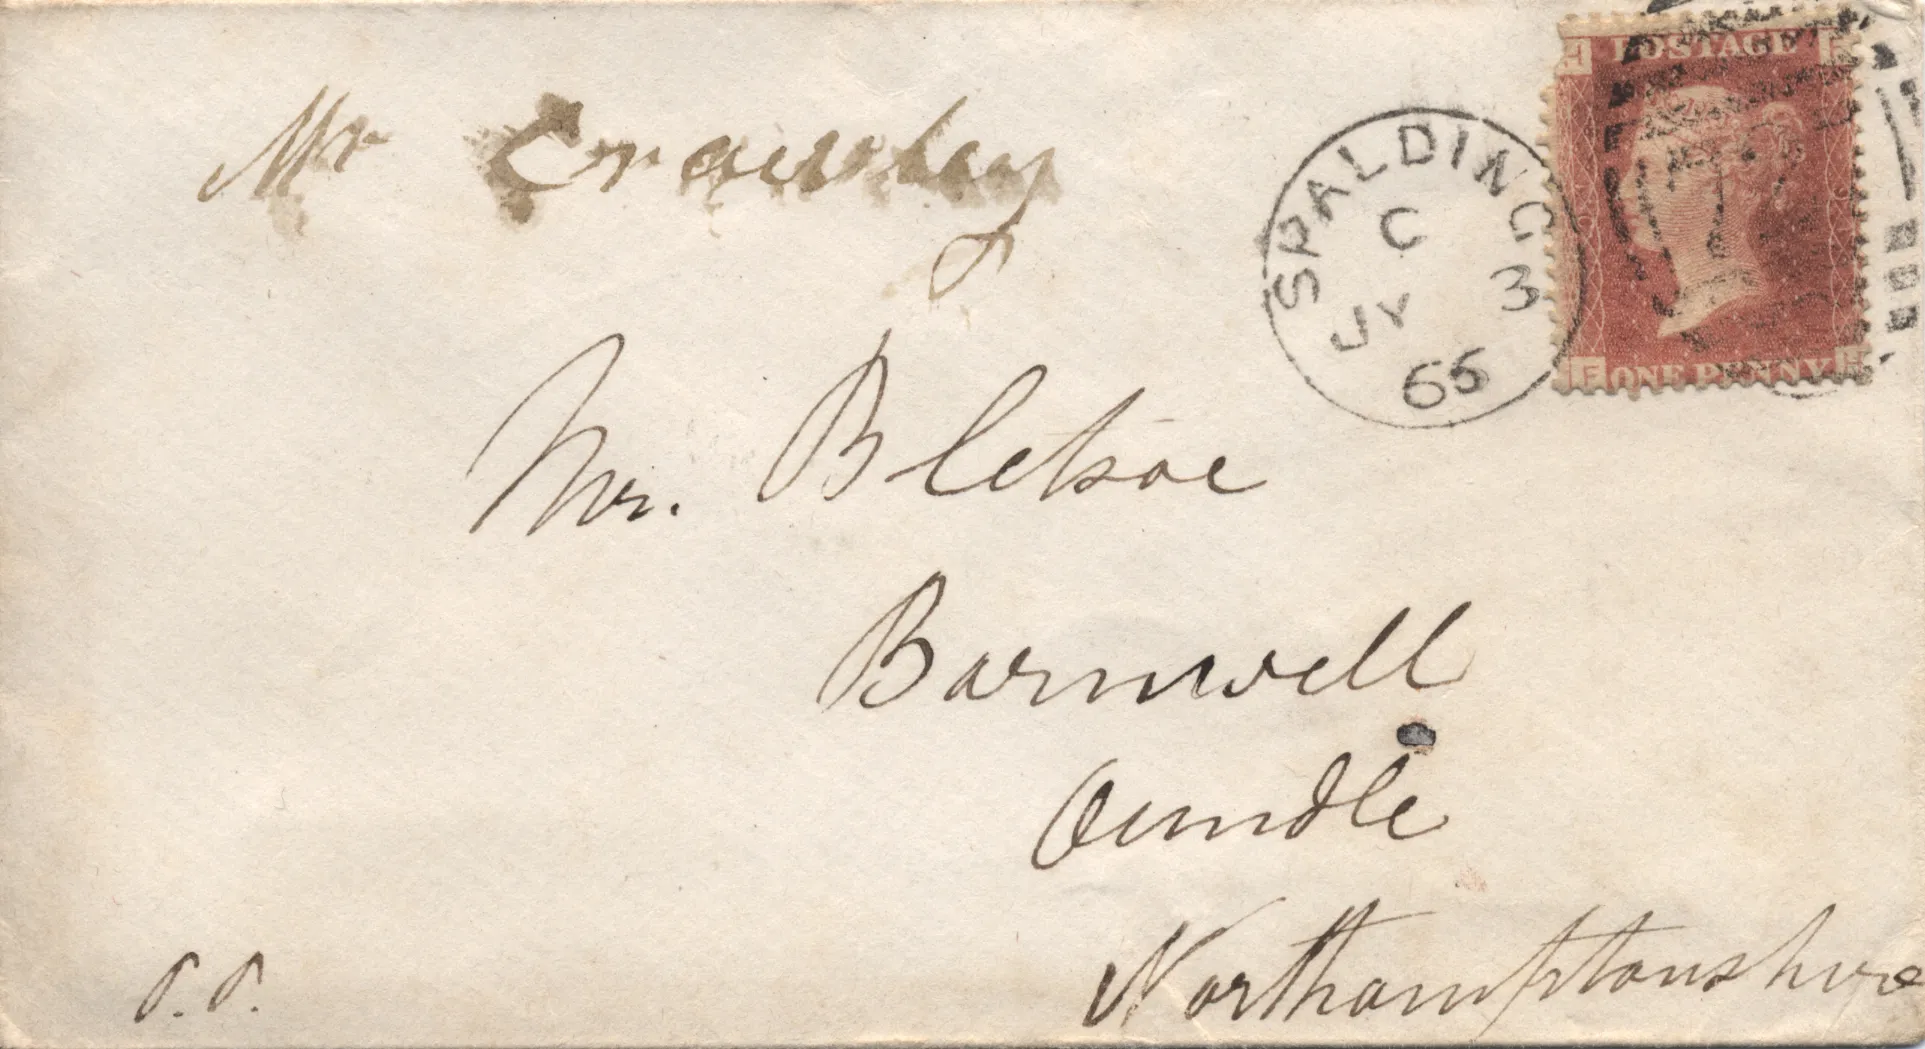 Mr Crawley
POSTAGE
SPALDING
C
JY 3
65
ONE PENNY
Mr. Bletsoe
Barnwell
Oundle
Northamptonshire
P.P.